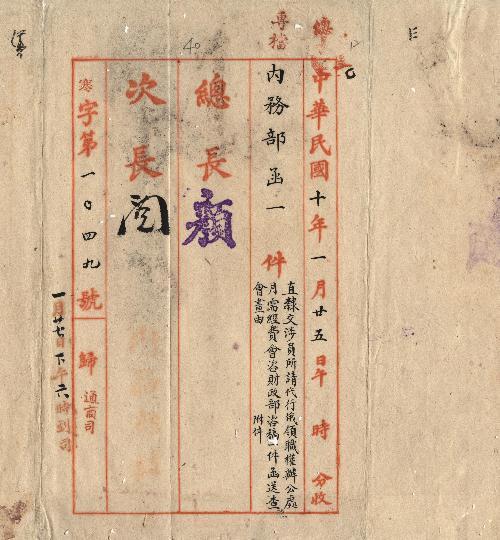 總
專檔
40
中華民國十年一月廿五日午 時 分收
內務部函一 件
直隸交涉員所請代行俄領職權辦公處
月需經費會咨財政部咨稿一件函送查
會畫由
附件
總長 顏
次長 閱
寒字第一〇四九號 歸通商司
一月廿七日下午六時到司